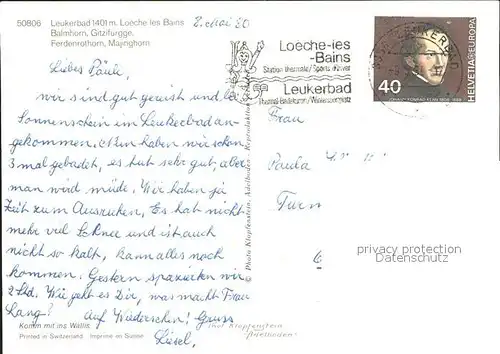 50806 Leukerbad 1401 m. Loèche les Bains
Balmhorn, Gitzifurgge,
Ferdenrothorn, Majinghorn
2. Mai 80
Loèche-les
-Bains
Station thermale / Sports d'hiver
Leukerbad
Thermal-Badekurort / Wintersportplatz
LEUKERBAD
40
HELVETIA EUROPA
Liebes Päuli,
wir sind gut gereist und bei
Sonnenschein im Leukerbad an-
gekommen. Nun haben wir schon
3 mal gebadet, es tut sehr gut, aber
man wird müde. Wir haben ja
Zeit zum Ausruhen. Es hat nicht
mehr viel Schnee und ist auch
nicht so kalt, kann alles noch
kommen. Gestern spazierten wir
2 Std. Wie geht es Dir, was macht Frau
Lang? Auf Wiedersehen! Gruss
Liesel,
Frau
Paula
Turn
© Photo Klopfenstein, Adelboden - Reproduktion
privacy protection
Datenschutz
Komm mit ins Wallis
Printed in Switzerland Imprimé en Suisse
Klopfenstein
Adelboden